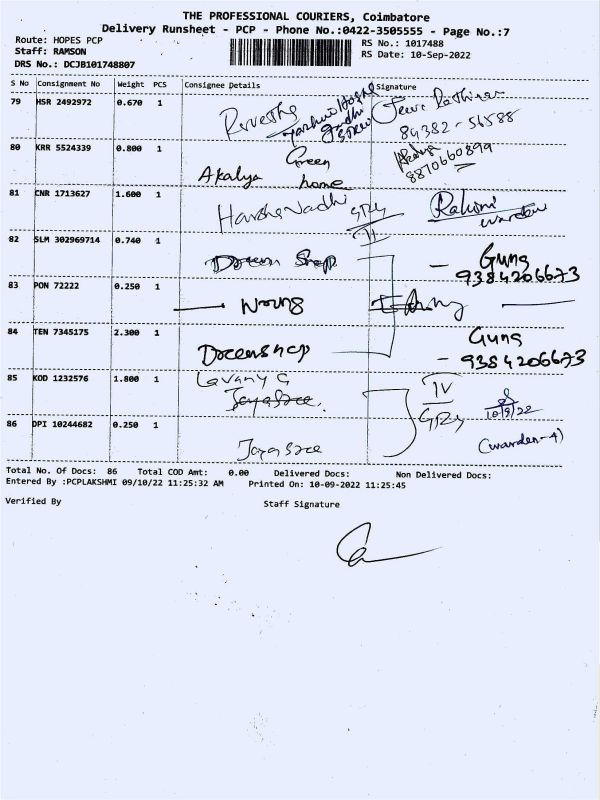 THE PROFESSIONAL COURIERS, Coimbatore
Delivery Runsheet - PCP - Phone No.:0422-3505555 - Page No.:7
Route: HOPES PCP
RS No.: 1017488
Staff: RAMSON
RS Date: 10-Sep-2022
DRS No.: DCJB101748807
S No Consignment No Weight PCS Consignee Details Signature
79 HSR 2492972 0.670 1
84382-56588
80 KRR 5524339 0.800 1 Akalya Green home
8870660899
81 CNR 1713627 1.600 1
warden
82 SLM 302969714 0.740 1 Guna
9384206673
83 PON 72222 0.250 1
84 TEN 7345175 2.300 1 Guna
9384206673
85 KOD 1232576 1.800 1 Lavany
IV
10/9/22
86 DPI 10244682 0.250 1 (warden-4)
Total No. Of Docs: 86 Total COD Amt: 0.00 Delivered Docs: Non Delivered Docs:
Entered By :PCPLAKSHMI 09/10/22 11:25:32 AM Printed On: 10-09-2022 11:25:45
Verified By Staff Signature